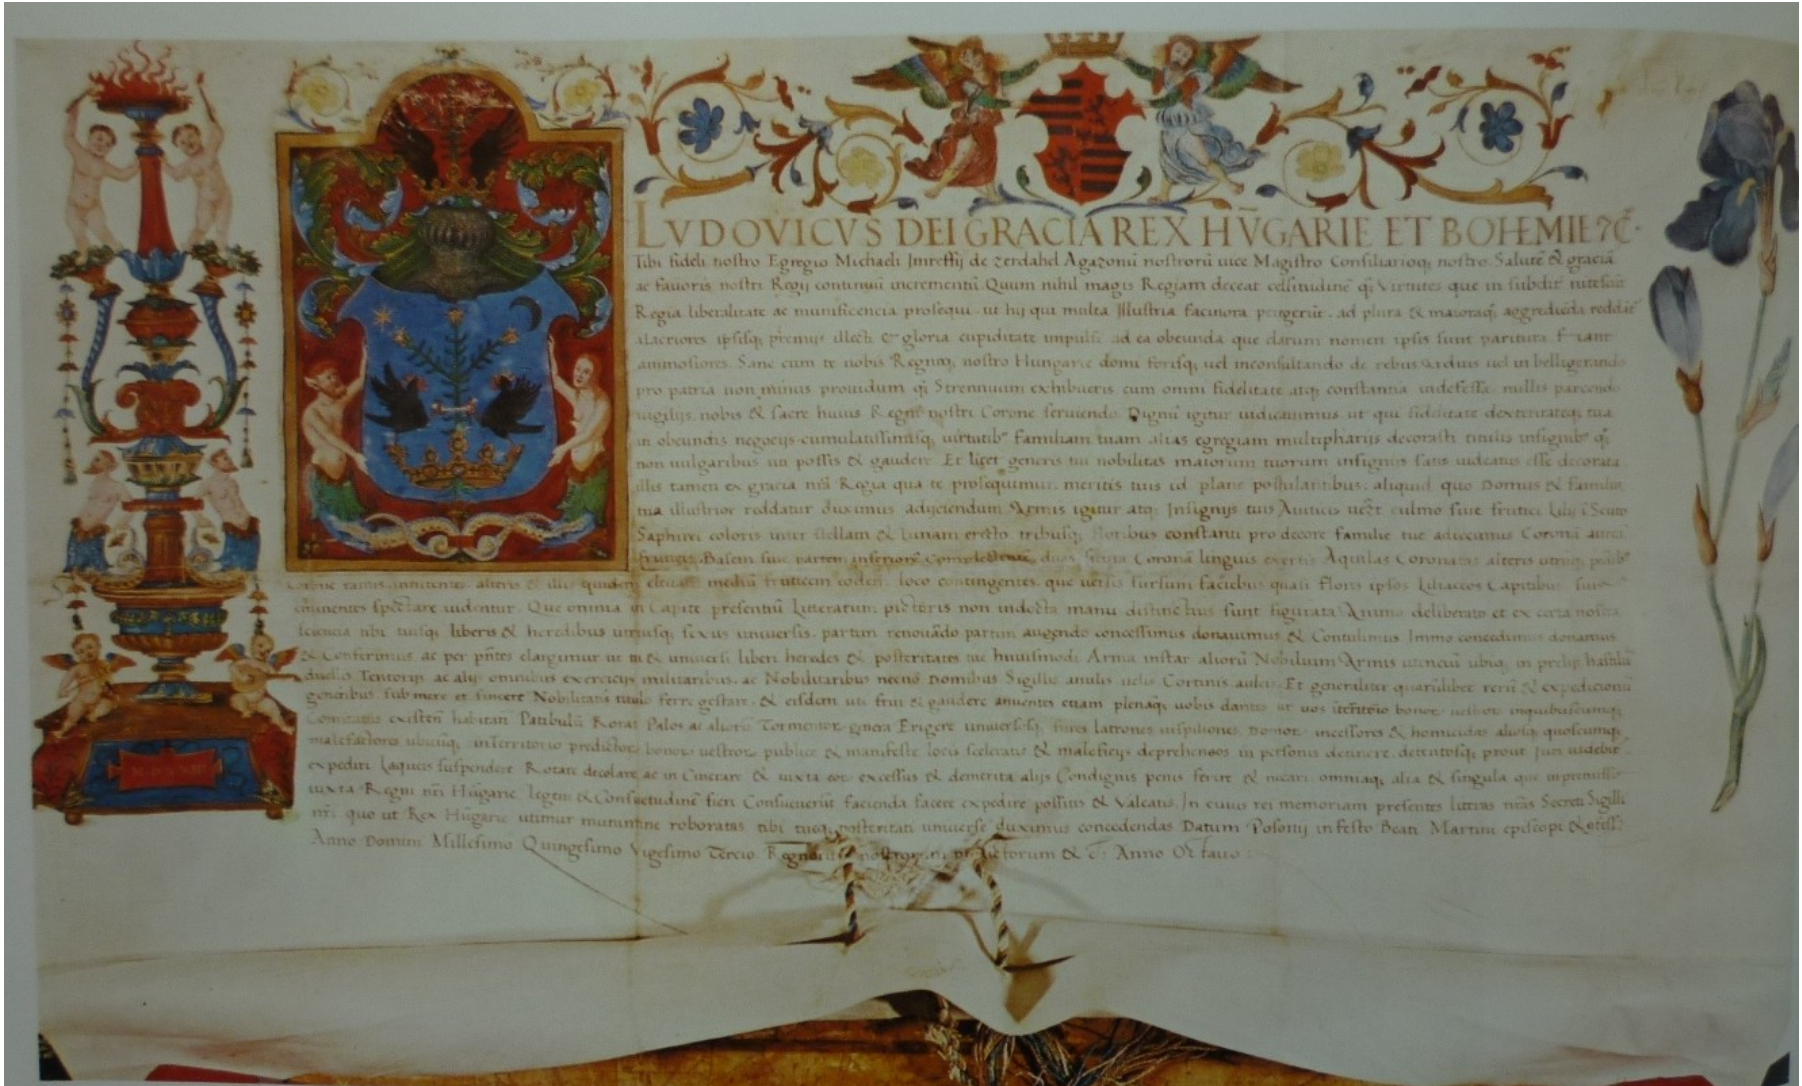 LVDOVICVS DEI GRACIA REX HŪGARIE ET BOHEMIE ⁊C̄
Tibi fideli nostro Egregio Michaeli Imreffij de zerdahel Agazonū nostrorū uice Magistro Consiliarioq; nostro. Salutē & graciā
ac fauoris nostri Regij continuū incrementū. Quum nihil magis Regiam deceat celsitudinē q̄ virtutes que in subdit
Regia liberalitate ac munificencia prosequi. ut hij qui multa Illustria facinora peregerūt. ad plura & maioraq; aggrediēda reddāt
alacriores ipsisq; premijs illecti & gloria cupiditate impulsi ad ea obeunda que clarum nomen ipsis sunt paritura. fiant
animosiores. Sane cum te nobis Regnoq; nostro Hungarie domi forisq; uel in consultando de rebus arduis uel in belligerando
pro patria non minus prouidum q̄ Strennuum exhibueris cum omni fidelitate atq; constantia indefessa. nullis parcendo
uigilijs. nobis & sacre huius Regni nostri Corone seruiendo. Dignū igitur iudicauimus ut qui fidelitate dexteritateq; tua
in obeundis negocijs cumulatissimisq; uirtutib; familiam tuam alias egregiam multipharijs decorasti titulis insignib; q;
non uulgaribus uti possis & gaudere. Et licet generis tui nobilitas maiorum tuorum insignijs satis uideatur esse decorata.
illis tamen ex gracia nr̄a Regia qua te prosequimur. meritis tuis id plane postulantibus. aliquid quo Domus & familia
tua illustrior reddatur duximus adijciendum. Armis igitur atq; Insignijs tuis Auitis culmo siue frutici Lilij ī Scuto
Saphirei coloris inter stellam & Lunam erecto tribusq; floribus constanti pro decore familie tue adiecimus Coronā aurei
fruticis. Basem siue partem inferiorē complectentē. duas Coronā linguis exertis Aquilas Coronatas alteris
ramis innitentes. alteris & illis quidem mediū fruticem eodem loco contingentes. que versis sursum faciebus quasi flores ipsos Liliaceos Capitibus suis
eminentes spectare uidentur. Que omnia in Capite presentiū Litterarum pictoris non indocta manu distinctius sunt figurata. Animo deliberato et ex certa nostra
sciencia tibi tuisq; liberis & heredibus utriusq; sexus uniuersis. partim renouādo partim augendo concessimus donauimus & Contulimus Immo concedimus donamus
& Conferimus ac per pn̄tes elargimur ut tu & uniuersi liberi heredes & posteritates tue huiusmodi Arma instar aliorū Nobilium Armis utenciū ubiq; in prelijs hastiludijs
duellis Tentorijs ac alijs omnibus exercicijs militaribus. ac Nobilitaribus necnō Domibus Sigillis anulis uelis Cortinis auleis. Et generaliter quarūlibet rerū & expedicionū
generibus. sub mere et sincere Nobilitatis titulo ferre gestare. & eisdem uti frui & gaudere. annuentes etiam plenāq; uobis dantes ut vos bonor uestror inquibuscumq;
Comitatus existen̄ habitan̄ Patibulū Rotas Palos ac aliorū Tormentor genera Erigere uniuersisq; fures latrones domor incessores & homicidas aliosq; quoscumq;
malefactores ubicūq; in Territorio predictor bonor uestror publice & manifeste locis sceleratis & maleficijs deprehensos in personis detinere. detentosq; prout Juri uidebit
expediri Laqueis suspendere Rotare decolare ac in Cinerare & iuxta eor excessus & demerita alijs Condignis penis ferire & necari. omniaq; alia & singula que in premissis
iuxta Regni nr̄i Hūgarie legem & Consuetudinē fieri Consueuerūt facienda facere expedire possitis & Valeatis. In cuius rei memoriam presentes litteras nr̄as Secreti Sigilli
nr̄i quo ut Rex Hūgarie utimur munimine roboratas tibi tueq; posteritati uniuerse duximus concedendas Datum Posonij in festo Beati Martini episcopi &
Anno Domini Millesimo Quingesimo Vigesimo Tercio. Regnorum nostrorum predictorum & c̄ Anno Octauo